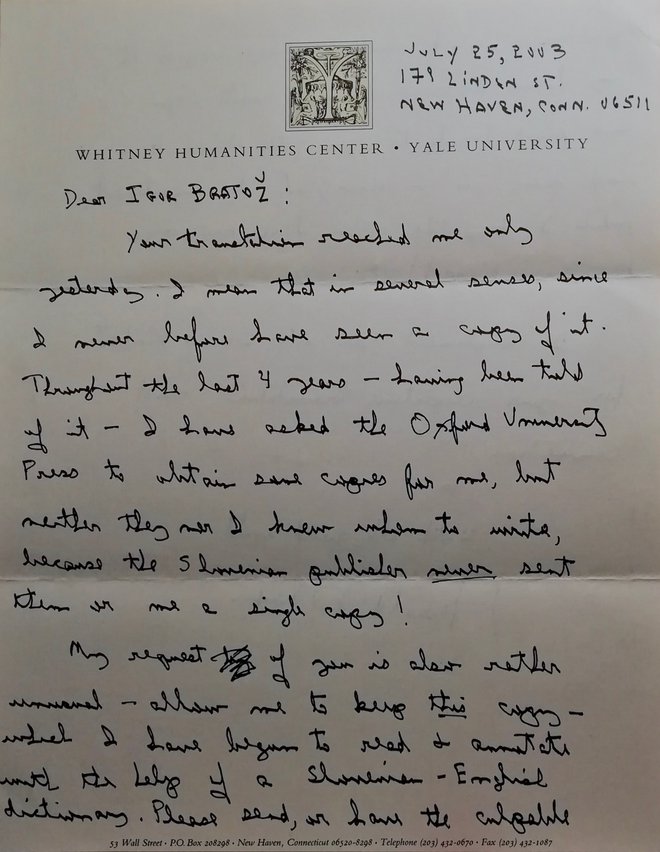 JULY 25, 2003
179 LINDEN ST.
NEW HAVEN, CONN. 06511
WHITNEY HUMANITIES CENTER • YALE UNIVERSITY
Dear IGOR BRATOŽ:
Your translation reached me only
yesterday. I mean that in several senses, since
I never before have seen a copy of it.
Throughout the last 4 years – having been told
of it – I have asked the Oxford University
Press to obtain some copies for me, but
neither they nor I knew whom to write,
because the Slovenian publisher never sent
them or me a single copy!
My request of you is also rather
unusual – allow me to keep this copy –
which I have begun to read & annotate
with the help of a Slovenian-English
dictionary. Please send, or have the culpable
53 Wall Street • P.O. Box 208298 • New Haven, Connecticut 06520-8298 • Telephone (203) 432-0670 • Fax (203) 432-1087